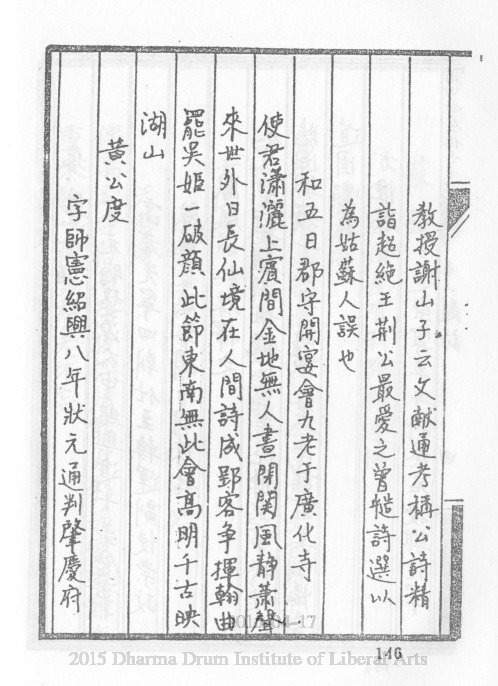 教授謝山子云文獻通考稱公詩精
詣超絕王荆公最愛之曾慥詩選以
為姑蘇人誤也
和五日郡守開宴會九老于廣化寺
使君瀟灑上賓間金地無人晝閉關風静蕭聲
來世外日長仙境在人間詩成郢客争揮翰曲
罷吳姬一破顔此節東南無此會高明千古映
湖山
黃公度
字師憲紹興八年狀元通判肇慶府
146
2015 Dharma Drum Institute of Liberal Arts